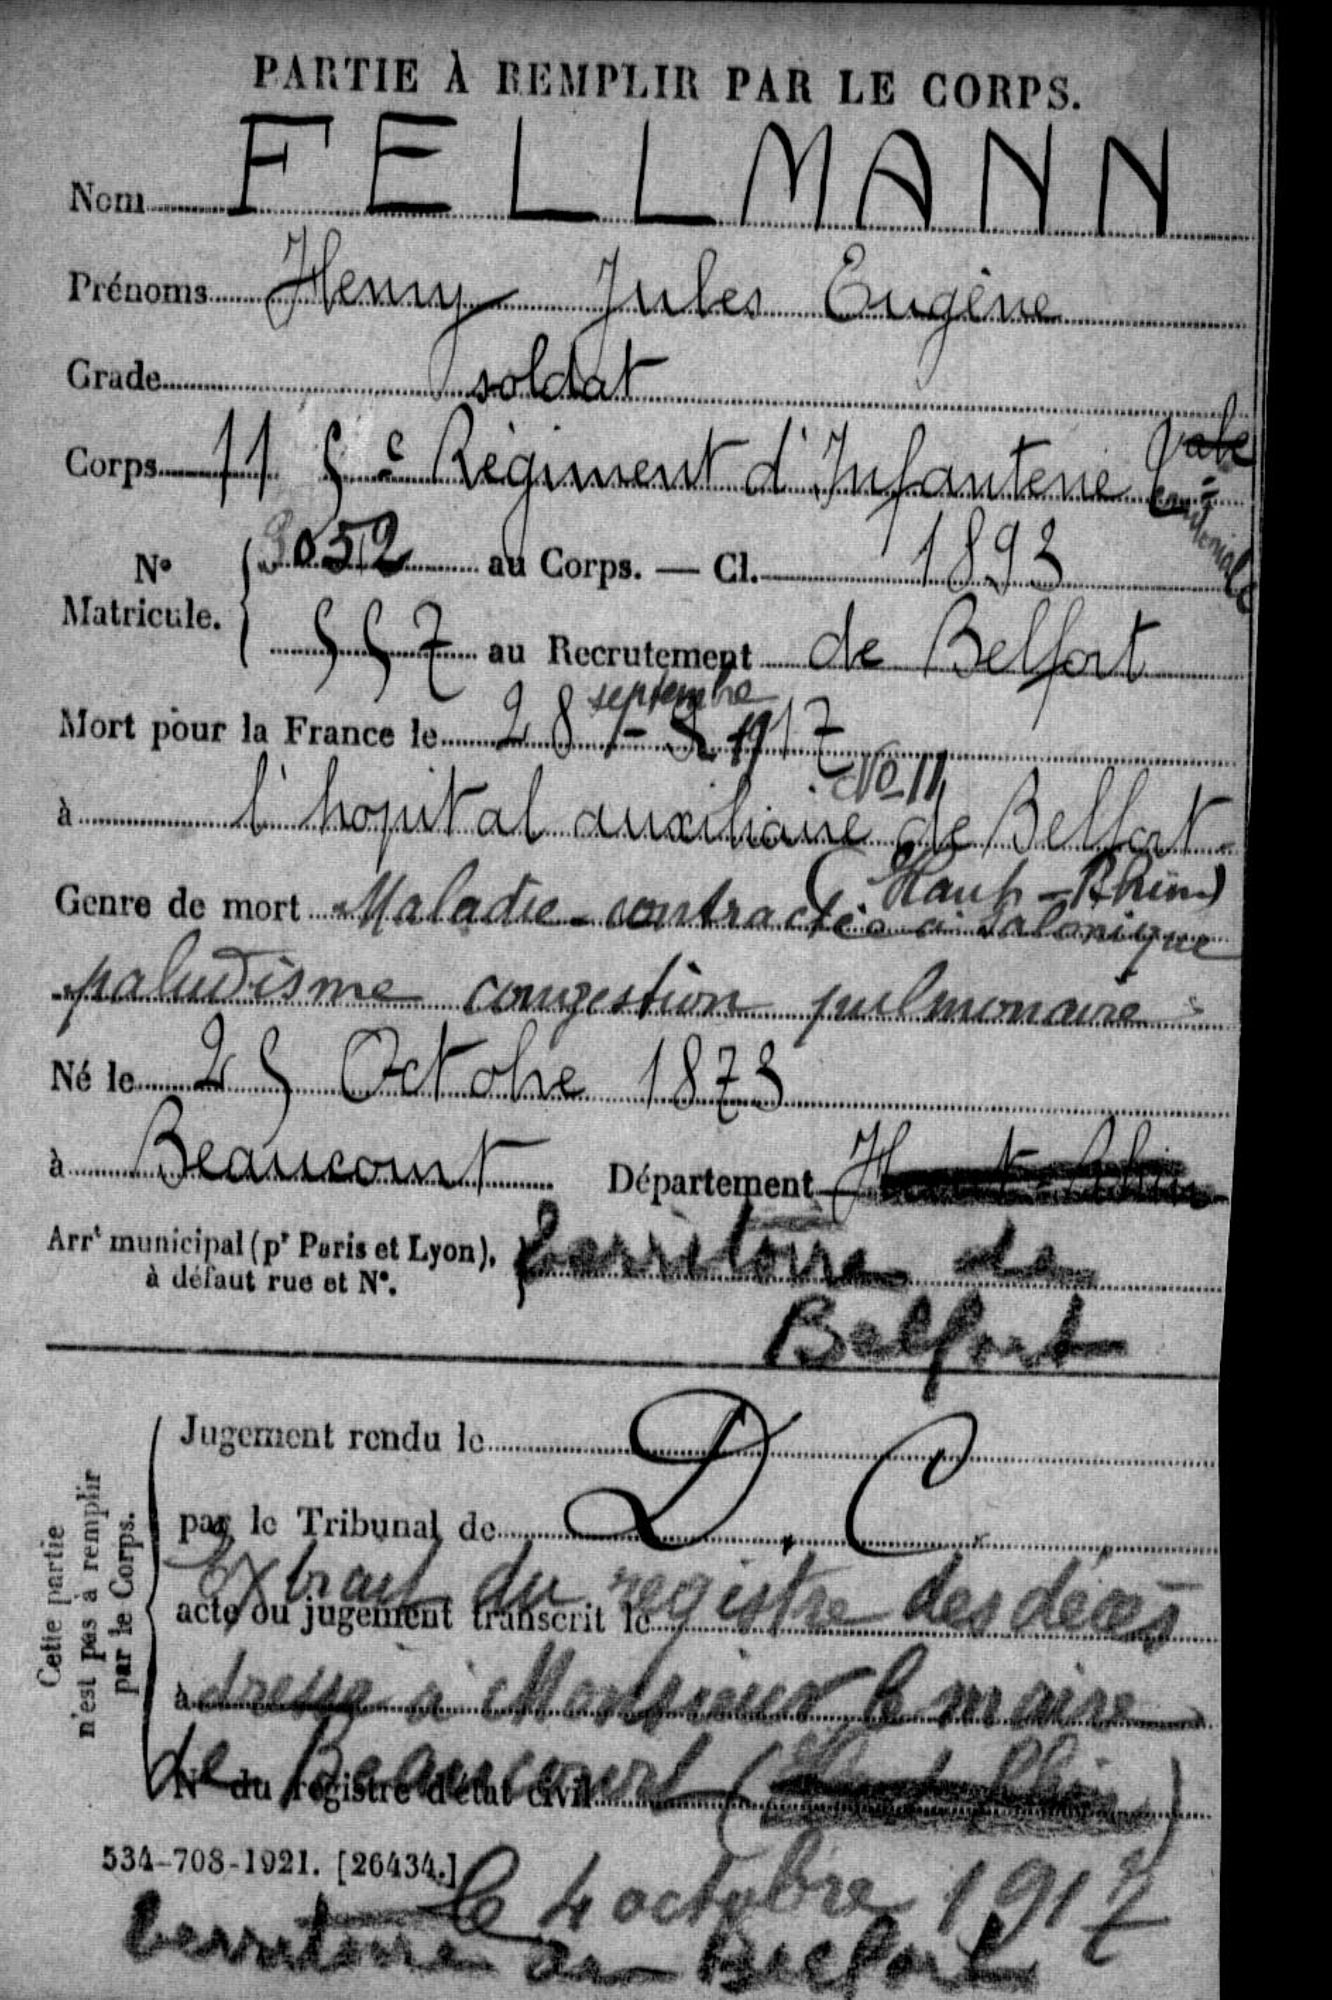 PARTIE À REMPLIR PAR LE CORPS.
Nom FELLMANN
Prénoms Henry Jules Eugène
Grade soldat
Corps 11 5e Régiment d'Infanterie
coloniale
N° Matricule. 3052 au Corps. — Cl. 1893
557 au Recrutement de Belfort
septembre
Mort pour la France le 28 - 9 1917
No 11
à l'hopital auxiliaire de Belfort
(Haut-Rhin)
Genre de mort Maladie contractée à Salonique
paludisme congestion pulmonaire
Né le 25 Octobre 1873
à Beaucourt Département Haut-Rhin
Arrt municipal (pr Paris et Lyon), à défaut rue et N°. territoire de
Belfort
Cette partie n'est pas à remplir par le Corps.
Jugement rendu le
D. C.
par le Tribunal de
Extrait du registre des décès
acte ou jugement transcrit le
à dressé à Monsieur le maire
de Beaucourt (Haut-Rhin)
N° du registre d'état civil
534-708-1921. [26434.]
le 4 octobre 1917
territoire de Belfort